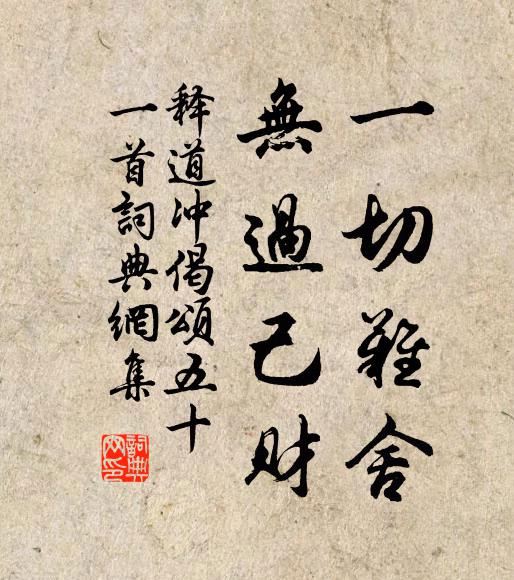 一切難舍
無過己財
释道冲偈頌五十
一首詞典網集
詞典網印